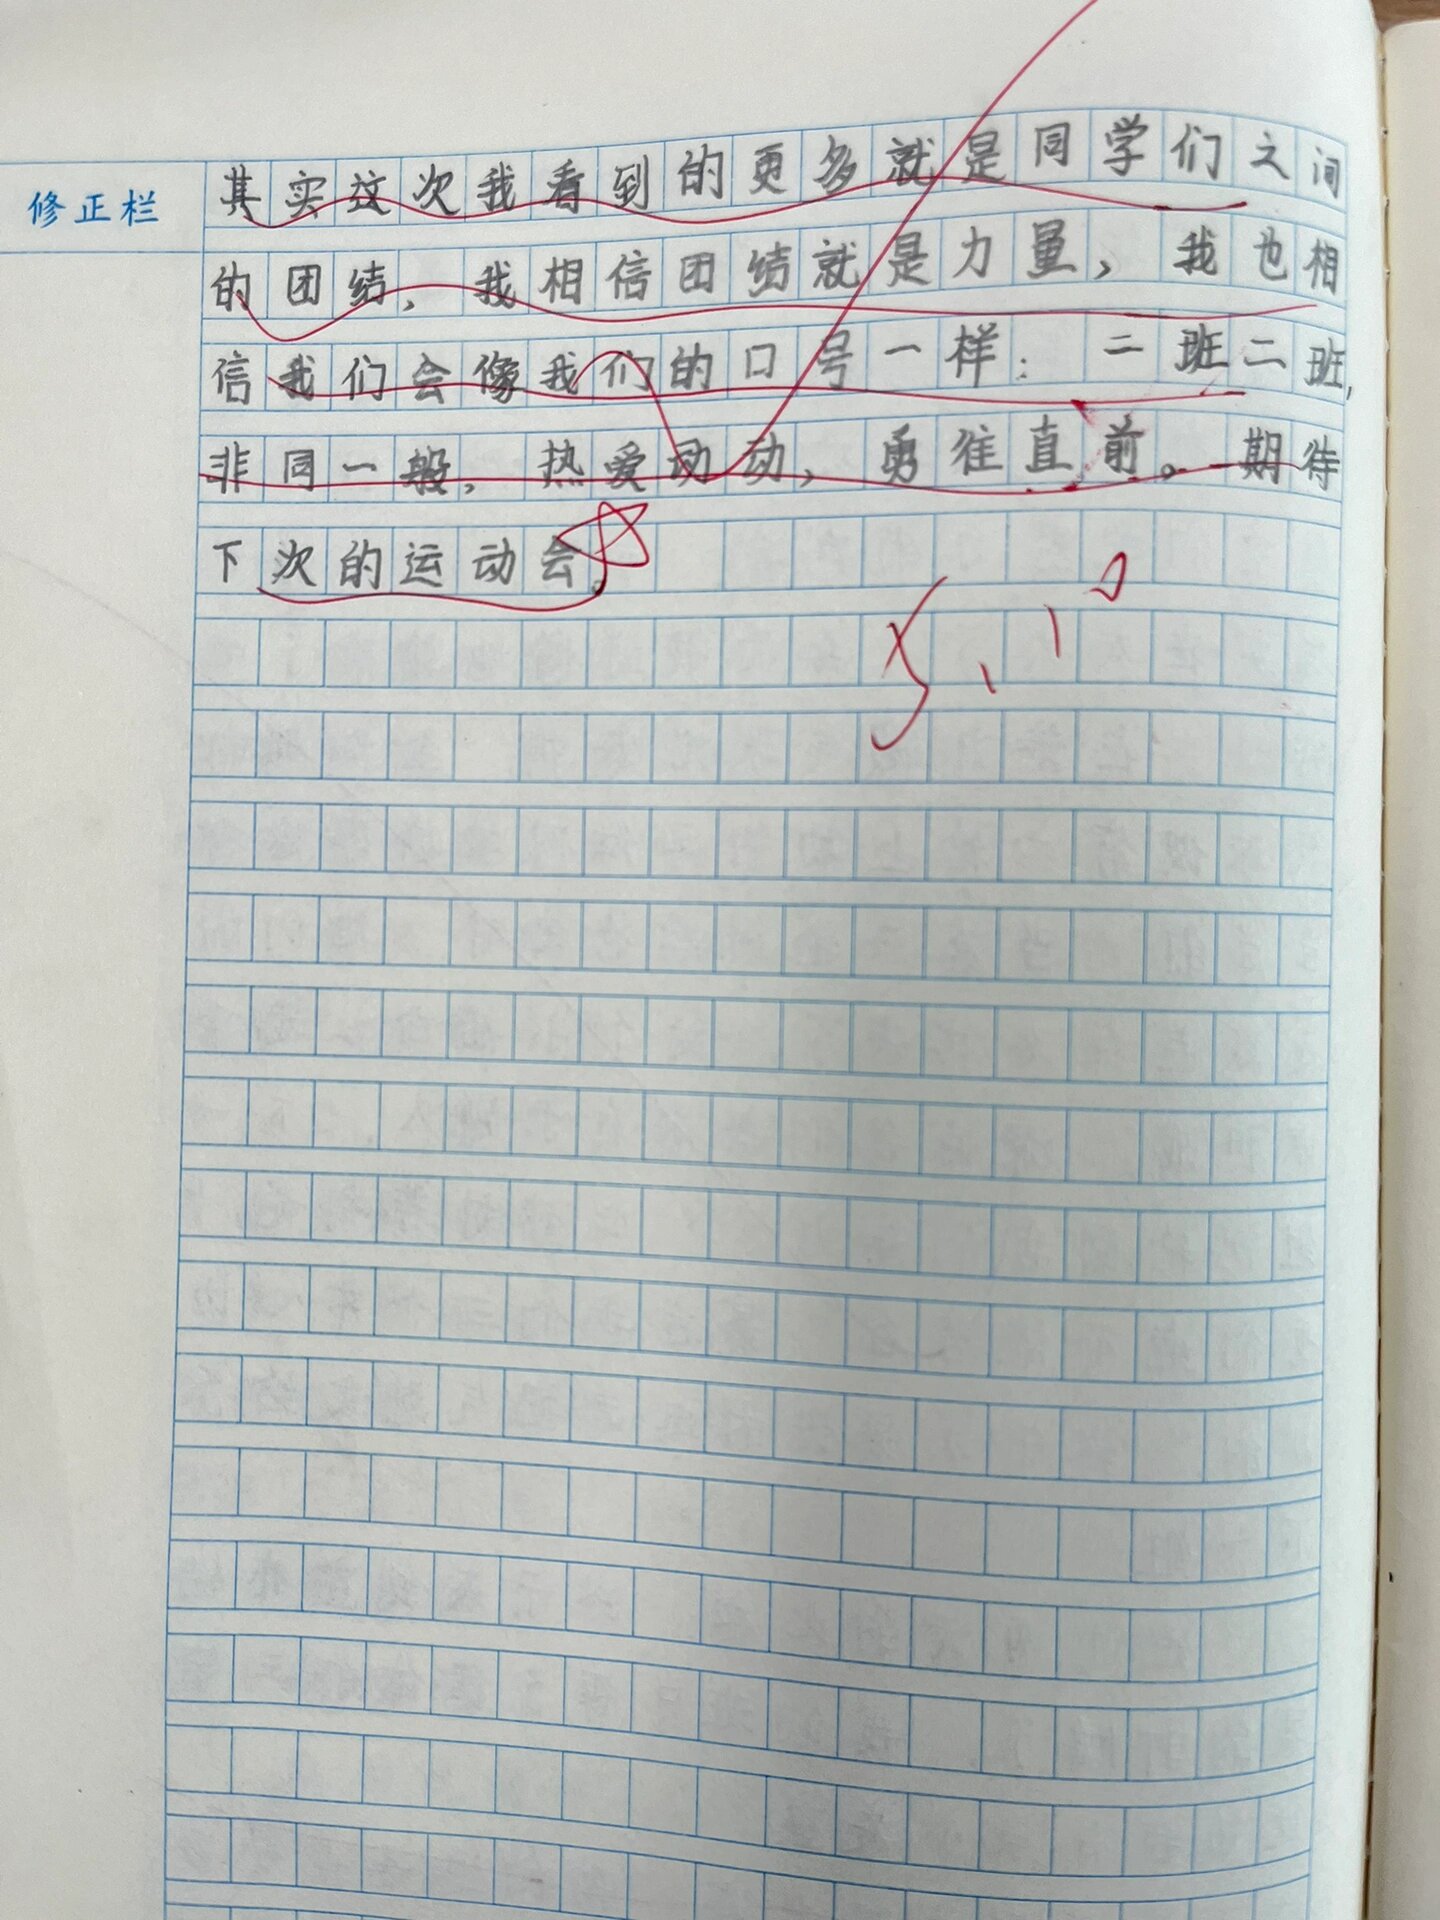 其实这次我看到的更多就是同学们之间
修正栏
的团结,我相信团结就是力量,我也相
信我们会像我们的口号一样:二班二班,
非同一般,热爱动动,勇往直前。期待
下次的运动会。